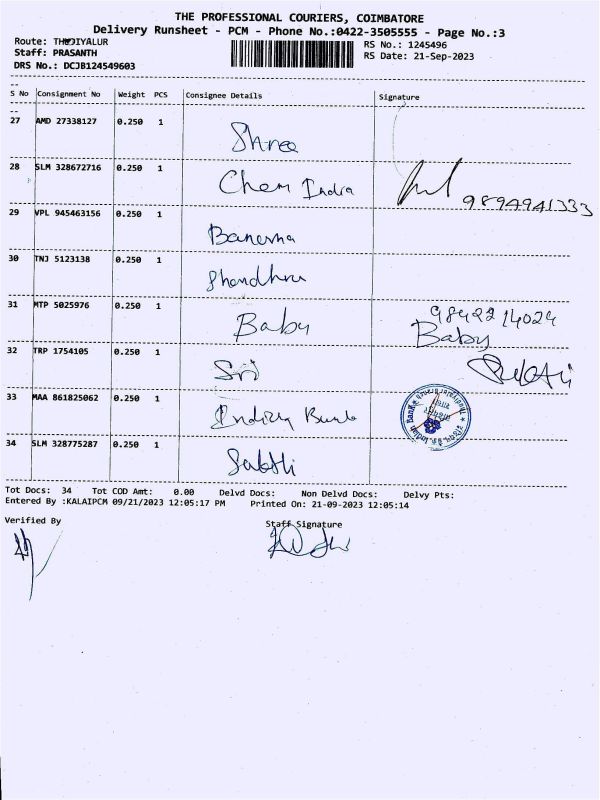 THE PROFESSIONAL COURIERS, COIMBATORE
Delivery Runsheet - PCM - Phone No.:0422-3505555 - Page No.:3
Route: THUDIYALUR
RS No.: 1245496
Staff: PRASANTH
RS Date: 21-Sep-2023
DRS No.: DCJB124549603
S No Consignment No Weight PCS Consignee Details Signature
27 AMD 27338127 0.250 1 Shree
28 SLM 328672716 0.250 1 Chem India 9894941333
29 VPL 945463156 0.250 1
30 TNJ 5123138 0.250 1
31 MTP 5025976 0.250 1 Baby 9842214024 Baby
32 TRP 1754105 0.250 1 Sri
33 MAA 861825062 0.250 1 Indian Bank Indian Bank
34 SLM 328775287 0.250 1 Sakthi
Tot Docs: 34 Tot COD Amt: 0.00 Delvd Docs: Non Delvd Docs: Delvy Pts:
Entered By :KALAIPCM 09/21/2023 12:05:17 PM Printed On: 21-09-2023 12:05:14
Verified By Staff Signature